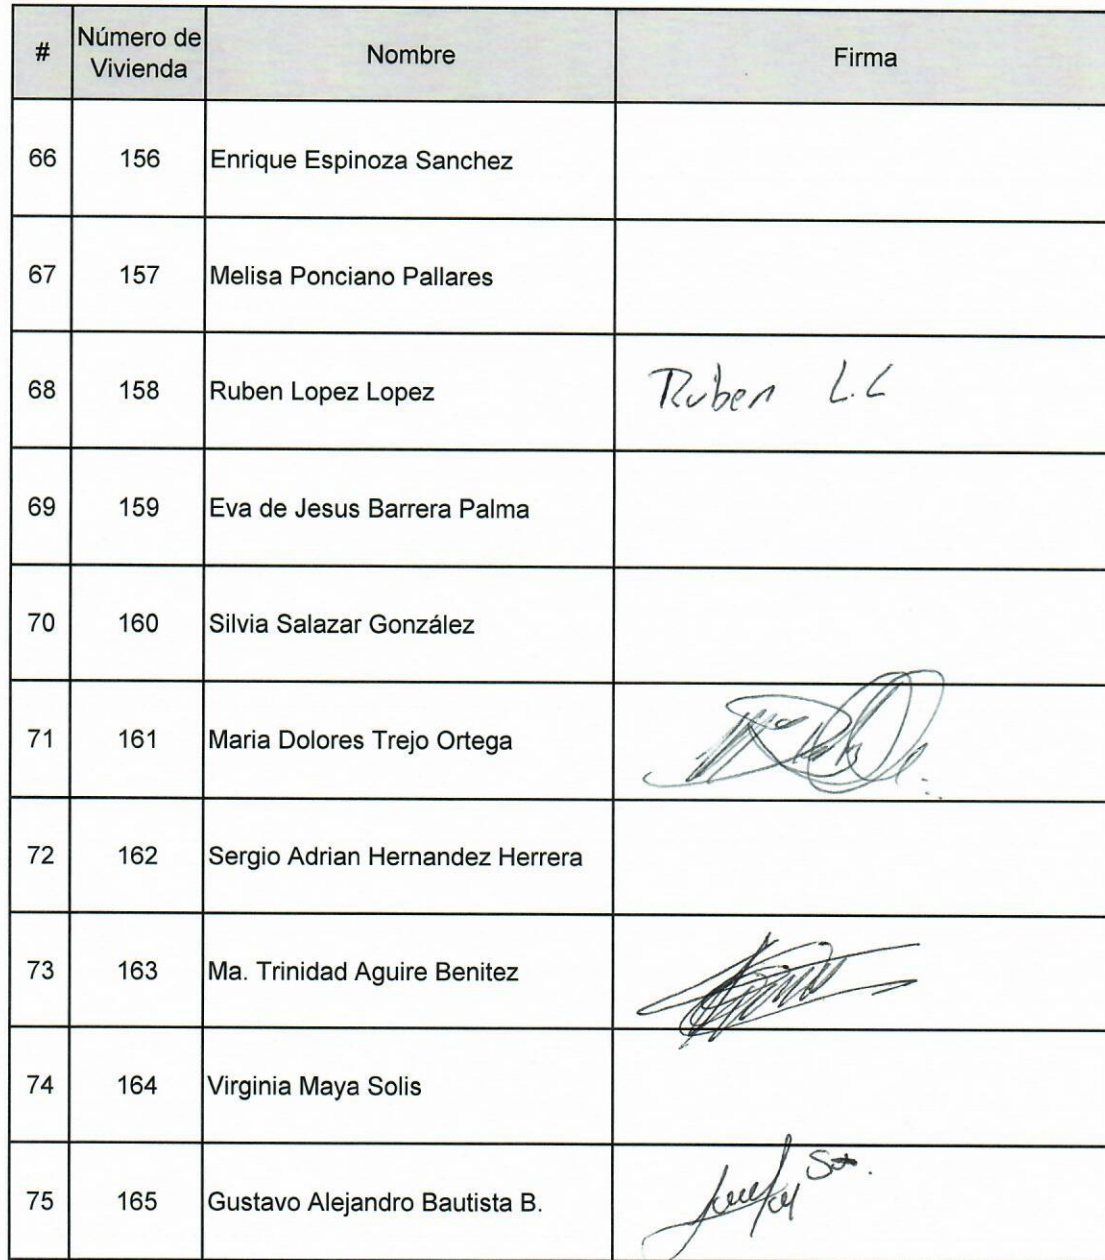 # Número de Vivienda Nombre Firma
66 156 Enrique Espinoza Sanchez
67 157 Melisa Ponciano Pallares
68 158 Ruben Lopez Lopez Ruben L.L
69 159 Eva de Jesus Barrera Palma
70 160 Silvia Salazar González
71 161 Maria Dolores Trejo Ortega
72 162 Sergio Adrian Hernandez Herrera
73 163 Ma. Trinidad Aguire Benitez
74 164 Virginia Maya Solis
75 165 Gustavo Alejandro Bautista B.